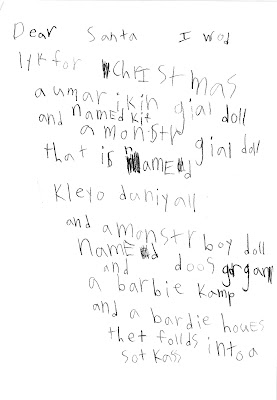 Dear Santa I wod
lik for ChrIstmas
a umarikin girl doll
and nameD kit
a monstr girl doll
that is nameed
Kleyo duniyall
and a monstr boy doll
nameed doos gorgan
and
a barbie kamp
and a bardie houes
thet follds into a
sotkass